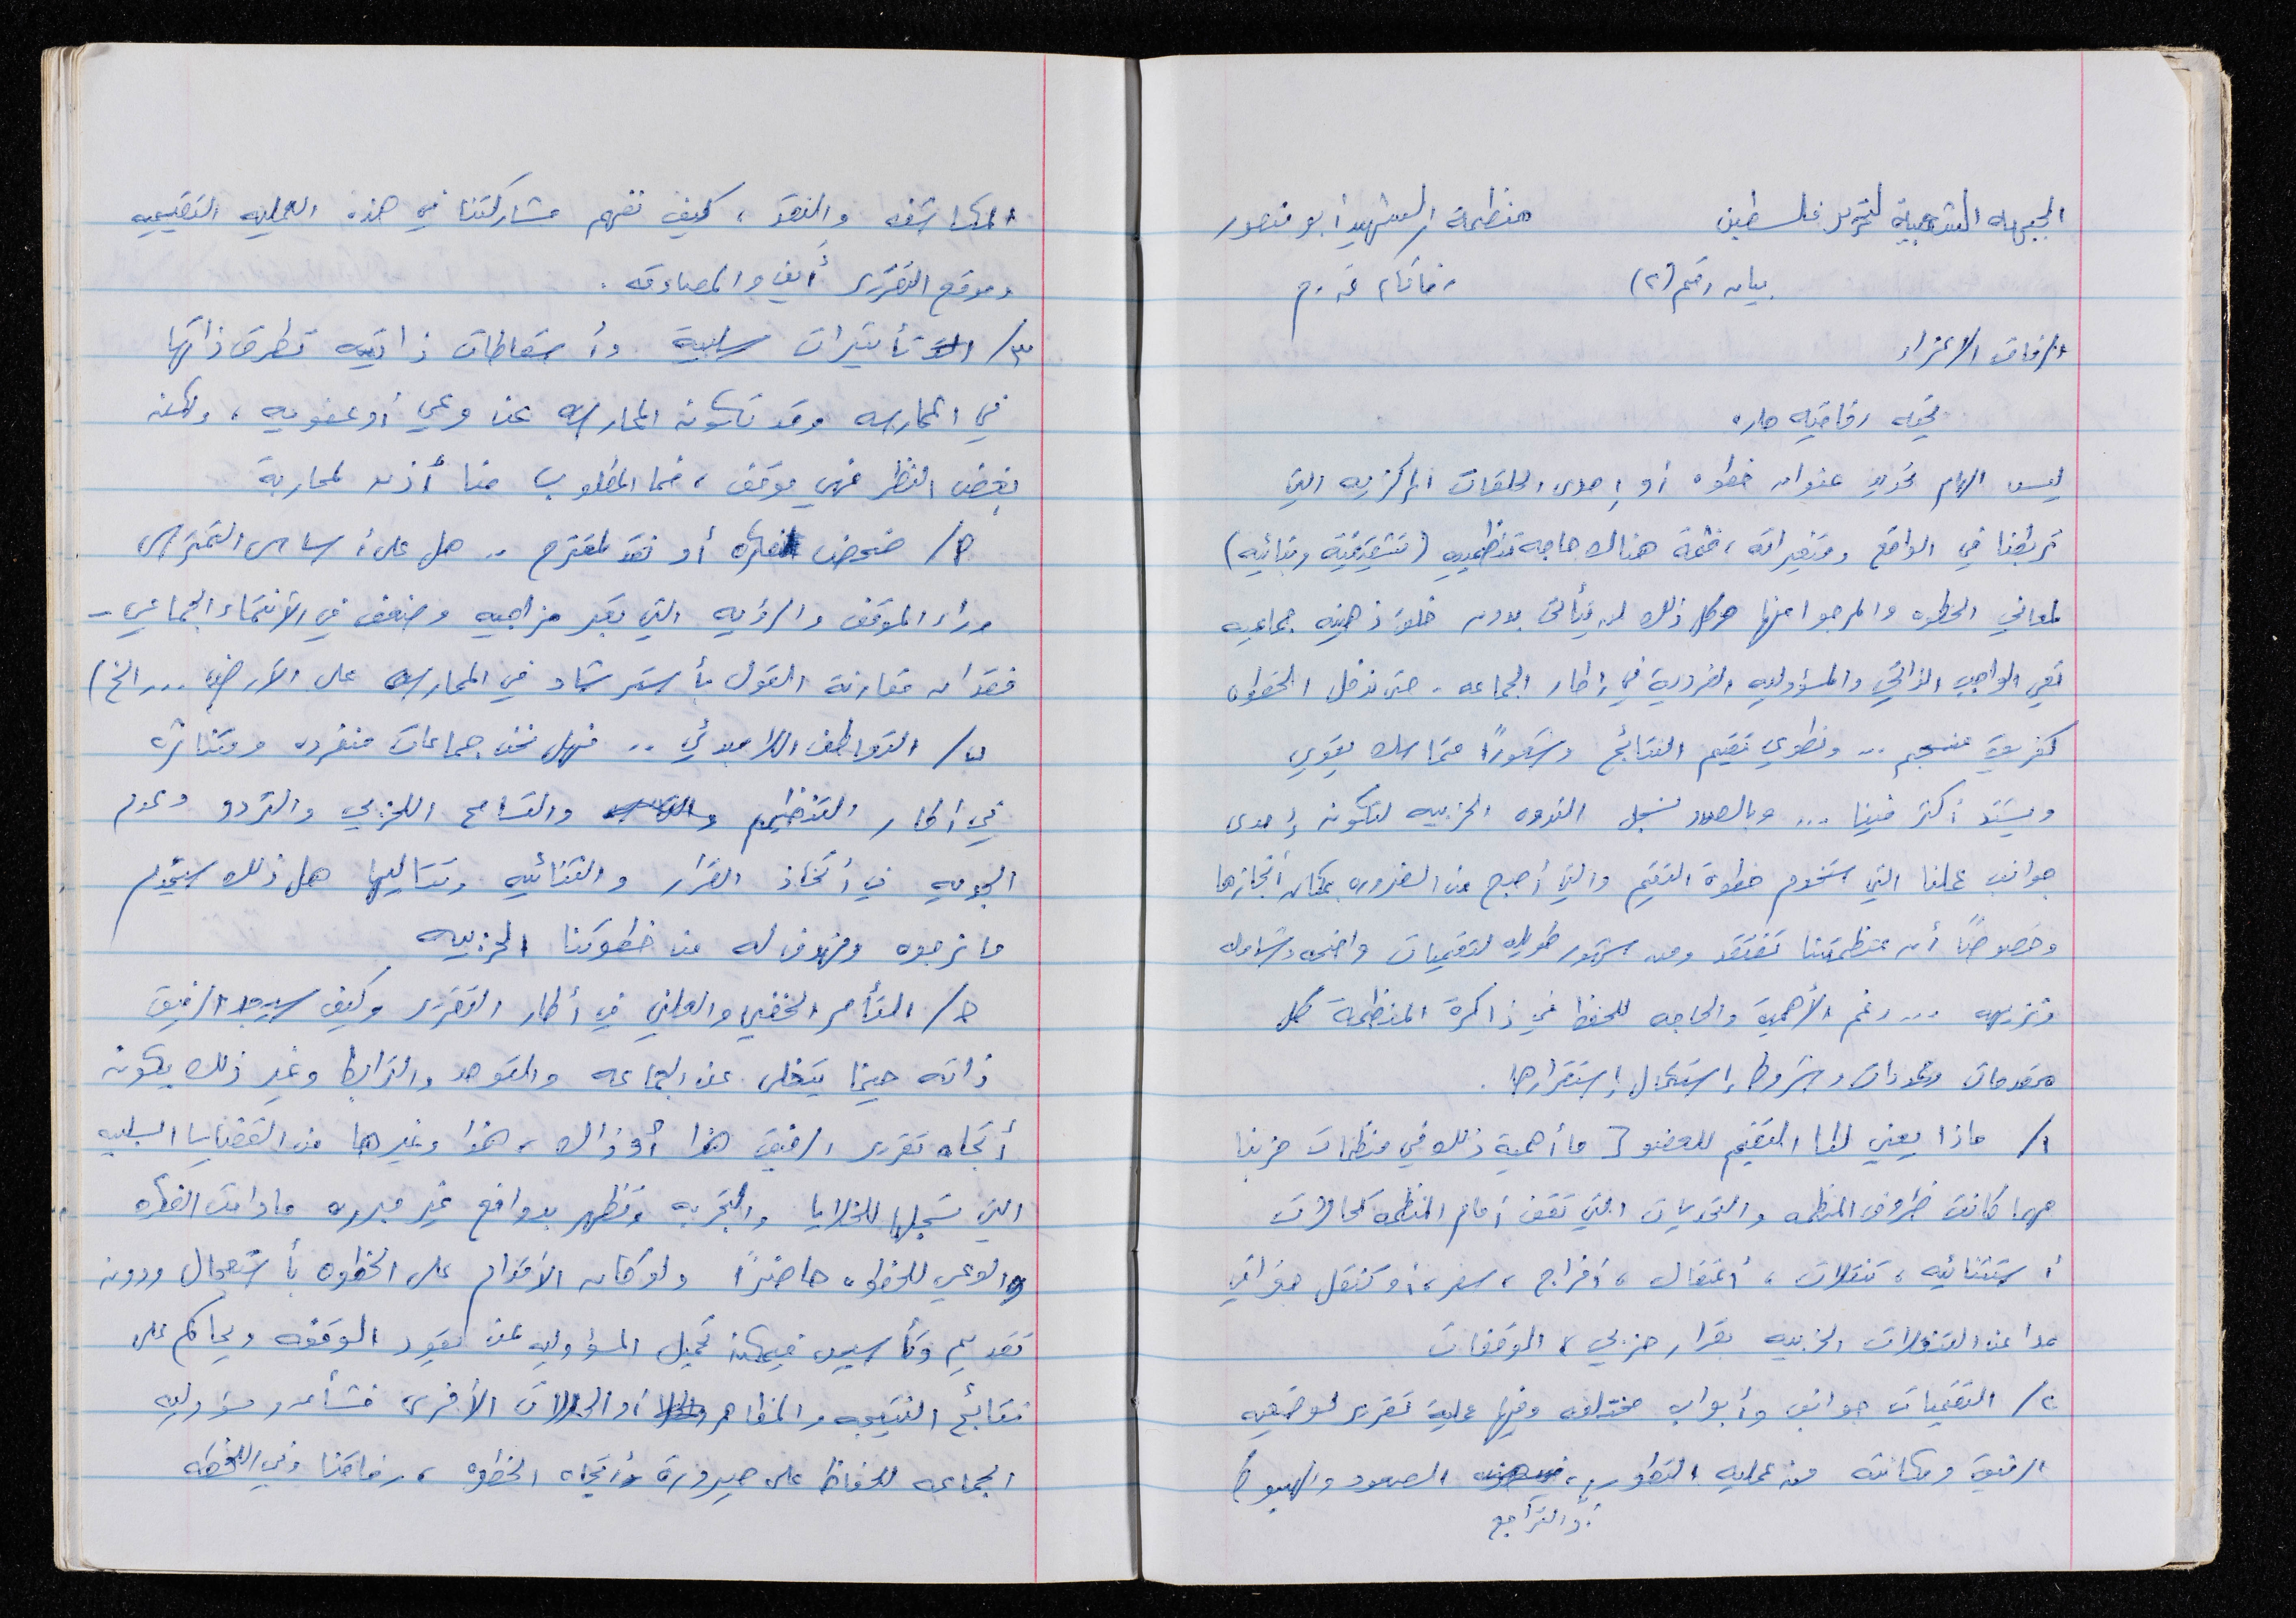 الجبهه الشعبية لتحرير فلسطين منظمة الشهيد أبو منصور
بيان رقم (٢)
الرفاق الاعزاء
تحيه رفاقيه حاره
ليس الهام تحديد عنوان خطوه أو إحدى الحلقات المركزيه التي
تربطنا في الواقع ومتغيراته ، فثمة هناك حاجه تنظيميه (تثقيفية وبنائيه)
لمعاني الخطوه والمرجوا منها وكل ذلك لن يتأتى بدون خلق ذهنيه جماعيه
تعي الواجب الذاتي والمسؤوليه الفردية في إطار الجماعه . حتى ندخل الخطوه
كفريق منسجم .. ونطوي تقيم النتائج وشعوراً متماسك يقوي
ويشتد أكثر فينا ... وبالصدد نسجل الندوه الحزبيه لتكون إحدى
جوانب عملنا التي ستخدم خطوة التقيم والتي أصبح من الضروره بمكان أنجازها
وخصوصاً أن منظمتنا تفتقد ومن شهور طويله لتقيمات واضحه وشامله
ونزيهه ... رغم الأهمية والحاجه للحفظ في ذاكرة المنظمة كل
مقدمات ومحددات وشروط إستكمال إستقرارها .
١/ ماذا يعني لنا التقيم للعضو ؟ ما أهمية ذلك في منظمات حزبنا
مهما كانت ظروف المنظمه والتحديات التي تقف أمام المنظمه كحالات
أستثنائيه ، تنقلات ، أعتقال ، أفراج ، سفر ، أو كنقل جغرافي
عدا عن التنقلات الحزبيه بقرار حزبي ، الوقفات
٢/ التقيمات جوانب وأبواب مختلفه وفيها عملية تقرير لوضعيه
الرفيق ومكانته من عمليه التطور ، الصعود والهبوط
أو التراجع
المكاشفه والنقد ، كيف نفهم مشاركتنا في هذه العمليه التقييميه
وموقع التقرير أين والمصادقه .
٣/ تأثيرات سلبية وأسقاطات ذاتيه تطرق ذاتها
في الممارسه وقد تكون الممارسه عن وعي أو عفويه ، ولكن
بغض النظر فهي موقف ، فما المطلوب منا أذن لمحاربة
أ/ فكره أو نقد لمقترح .. هل على أساس التمترس
وراء الموقف والرؤيه التي تعبر مزاجيه وضعف في الأنتماء الجماعي -
فقدان مقارنة القول بأسترشاد في الممارسه على الأرض ... الخ)
ب/ التعاطف اللامبدئي .. فهل نحن جماعات منفرده ومتناثره
في أطار التنظيم والتسامح اللاحزبي والتردد وعدم
الجديه في أتخاذ القرار والثنائيه ومثاليها هل ذلك سيخدم
ما نرجوه ونهدف له من خطوتنا الحزبيه
ج/ التأمر الخفي والعلني في أطار التقرير وكيف سيجد الرفيق
ذاته حينما يتخلى عن الجماعه والتوحد والترابط وغير ذلك يكون
أتجاه تقرير الرفيق هذا أو ذاك ، هذا وغيرها من القضايا السلبيه
التي تسجلها الخلايا والتجربه وتظهر بدوافع غير مبرره مادامت الفكره
والوعي للخطوه حاضراً ولو كان الأقدام على الخطوه بأستعجال ودون
تقديم وتأسيس فيمكن تحميل المسؤوليه عن يقود الوقفه ويحاكم على
نتائج النتيجه والمظاهر أو الحالات الأخرى فتأمر ومسؤوليه
الجماعه للحفاظ على صيرورة وأتجاه الخطوه ، رفاقنا وفي اللحظه